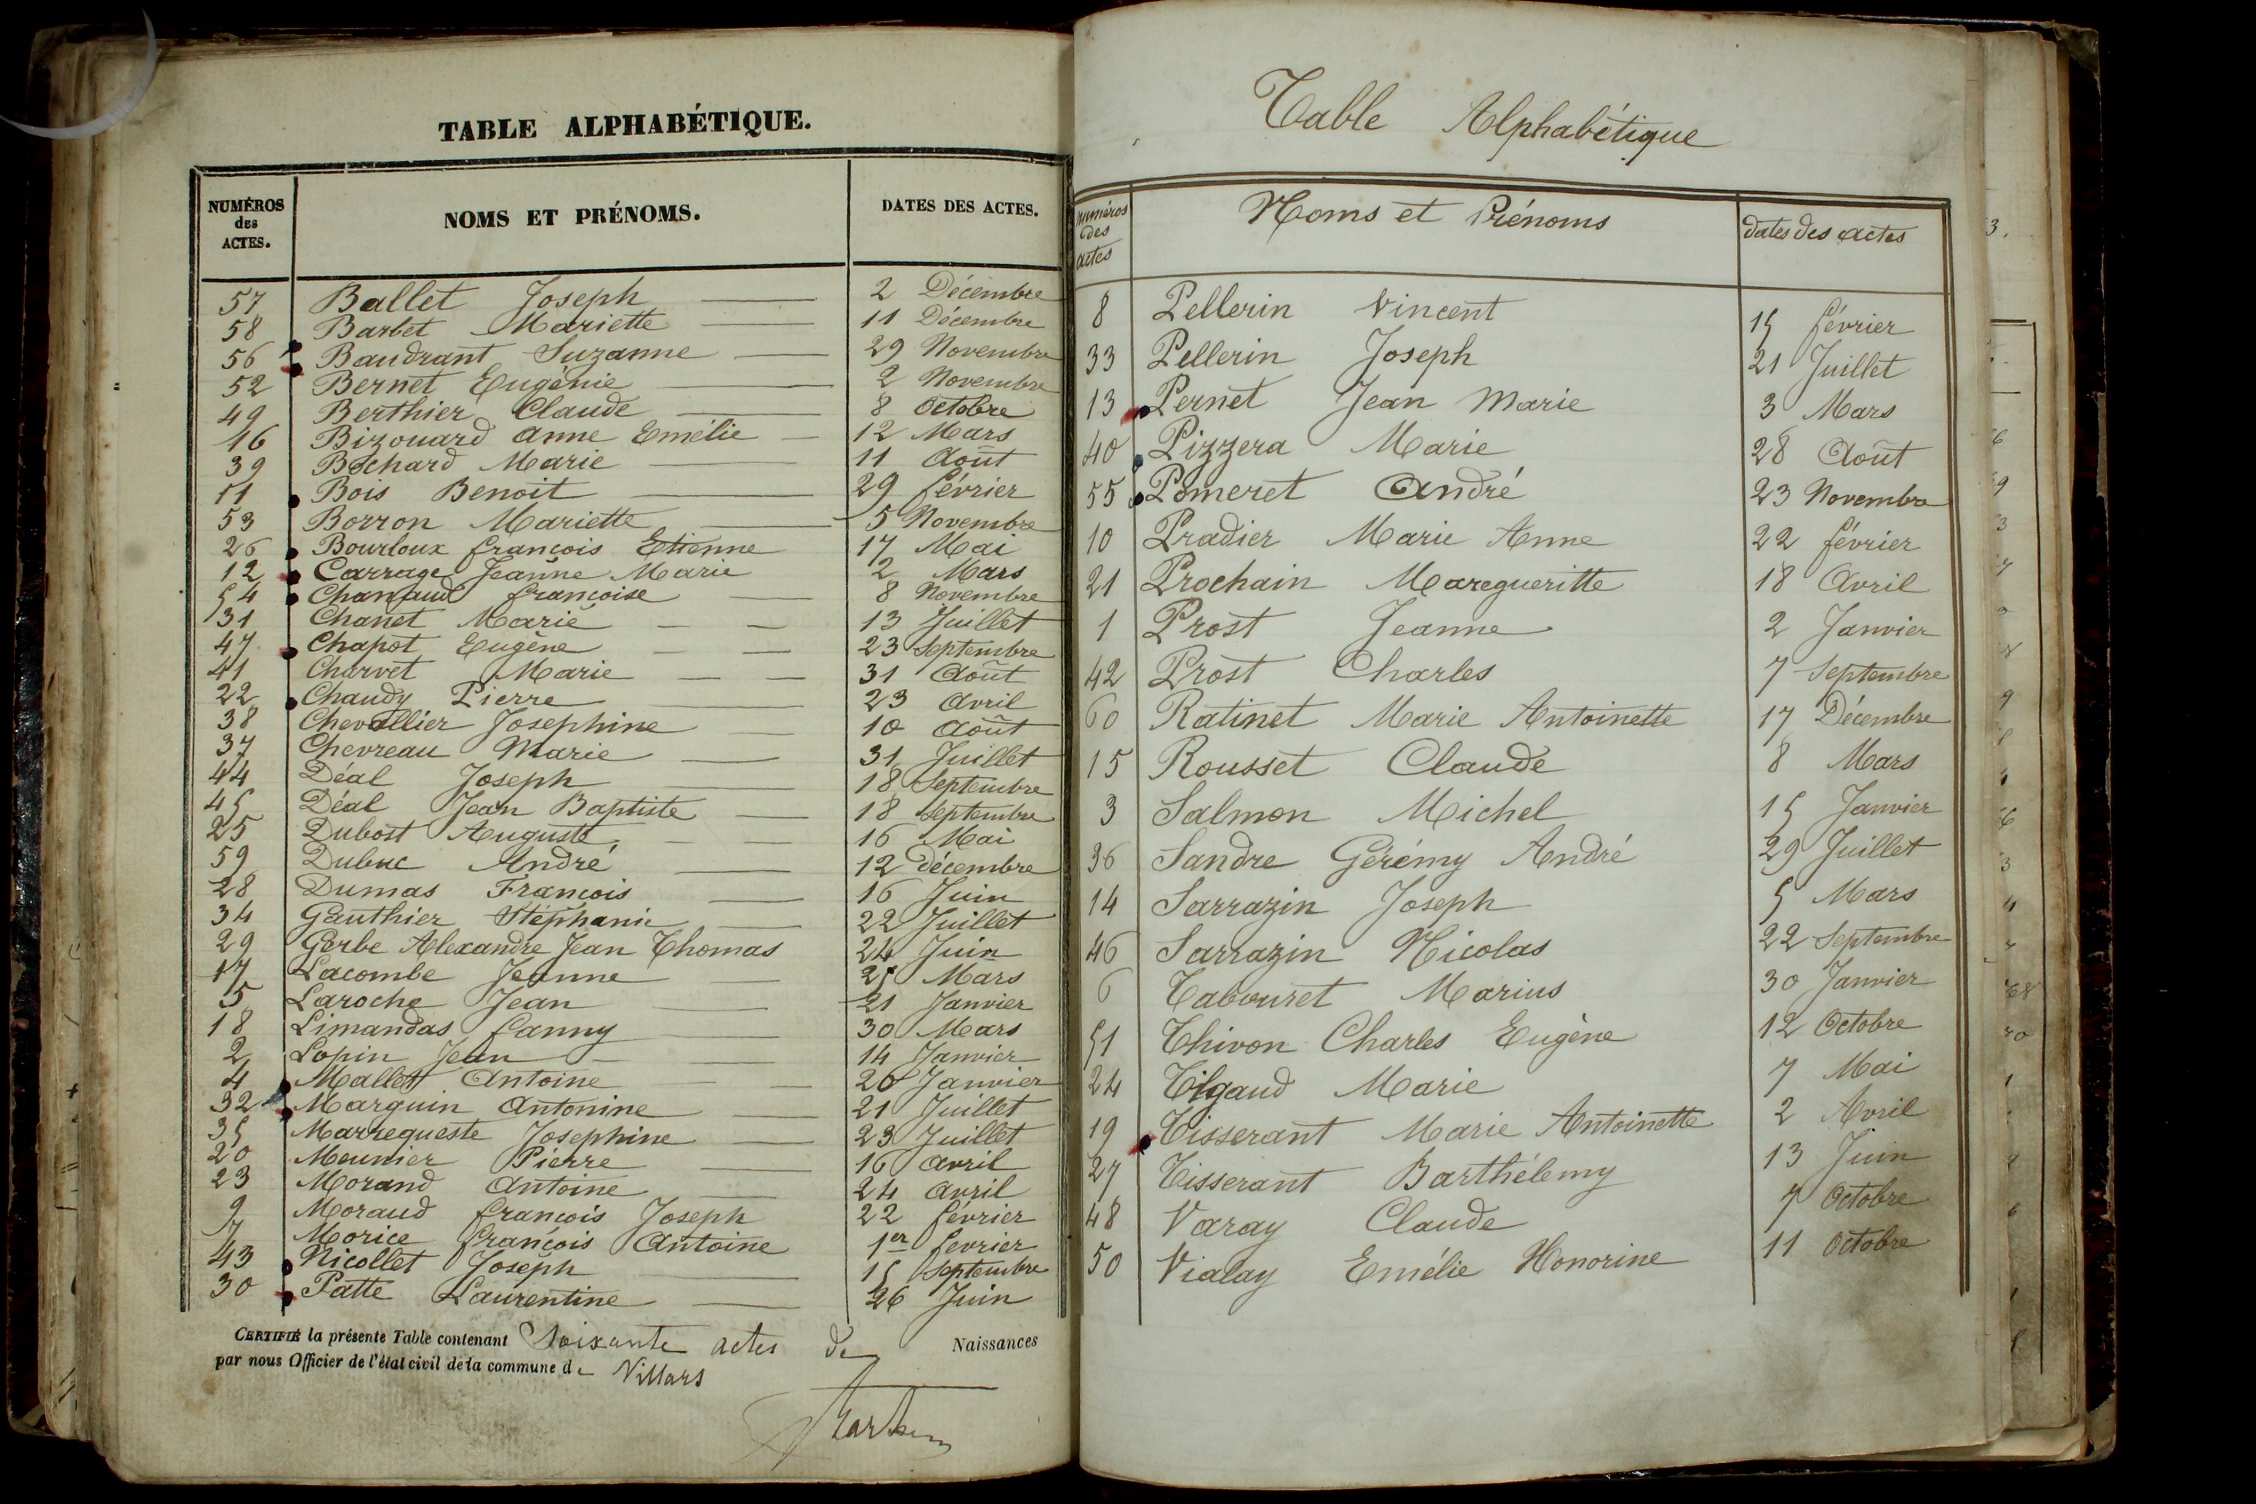 TABLE ALPHABÉTIQUE.
NUMÉROS des ACTES. NOMS ET PRÉNOMS. DATES DES ACTES.
57 Ballet Joseph 2 Décembre
58 Barbet Mariette 11 Décembre
56 Baudrant Suzanne 29 Novembre
52 Bernet Eugénie 2 Novembre
49 Berthier Claude 8 Octobre
16 Bizouard Anne Emélie 12 Mars
39 Bochard Marie 11 Août
11 Bois Benoit 29 février
53 Borron Mariette 5 Novembre
26 Bourloux françois Etienne 17 Mai
12 Carrage Jeanne Marie 2 Mars
54 Chanaud françoise 8 Novembre
31 Chanet Marie 13 Juillet
47 Chapot Eugène 23 Septembre
41 Charvet Marie 31 Août
22 Chaudy Pierre 23 Avril
38 Chevallier Josephine 10 Août
37 Chevreau Marie 31 Juillet
44 Déal Joseph 18 Septembre
45 Déal Jean Baptiste 18 Septembre
25 Dubost Auguste 16 Mai
59 Dubuc André 12 Décembre
28 Dumas François 16 Juin
34 Gauthier Stéphanie 22 Juillet
29 Gerbe Alexandre Jean Thomas 24 Juin
17 Lacombe Jeanne 25 Mars
5 Laroche Jean 21 Janvier
18 Limandas fanny 30 Mars
2 Lopin Jean 14 Janvier
4 Mallett Antoine 20 Janvier
32 Marguin Antonine 21 Juillet
35 Marrequeste Josephine 23 Juillet
20 Meunier Pierre 16 Avril
23 Morand Antoine 24 Avril
9 Moraud françois Joseph 22 février
7 Morice françois Antoine 1er fevrier
43 Nicollet Joseph 15 Septembre
30 Patte Laurentine 26 Juin
CERTIFIÉ la présente Table contenant Soixante actes de Naissances
par nous Officier de l'état civil de la commune de Villars
Table Alphabétique
numéros des actes Noms et Prénoms dates des actes
8 Pellerin Vincent 15 février
33 Pellerin Joseph 21 Juillet
13 Pernet Jean Marie 3 Mars
40 Pizzera Marie 28 Août
55 Pomeret André 23 Novembre
10 Pradier Marie Anne 22 février
21 Prochain Maregueritte 18 Avril
1 Prost Jeanne 2 Janvier
42 Prost Charles 7 Septembre
60 Ratinet Marie Antoinette 17 Décembre
15 Rousset Claude 8 Mars
3 Salmon Michel 15 Janvier
36 Sandre Gérémy André 29 Juillet
14 Sarrazin Joseph 5 Mars
46 Sarrazin Nicolas 22 Septembre
6 Tabouret Marius 30 Janvier
51 Thivon Charles Eugène 12 Octobre
24 Tigaud Marie 7 Mai
19 Tisserant Marie Antoinette 2 Avril
27 Tisserant Barthélemy 13 Juin
48 Varay Claude 7 Octobre
50 Vialay Emélie Honorine 11 Octobre